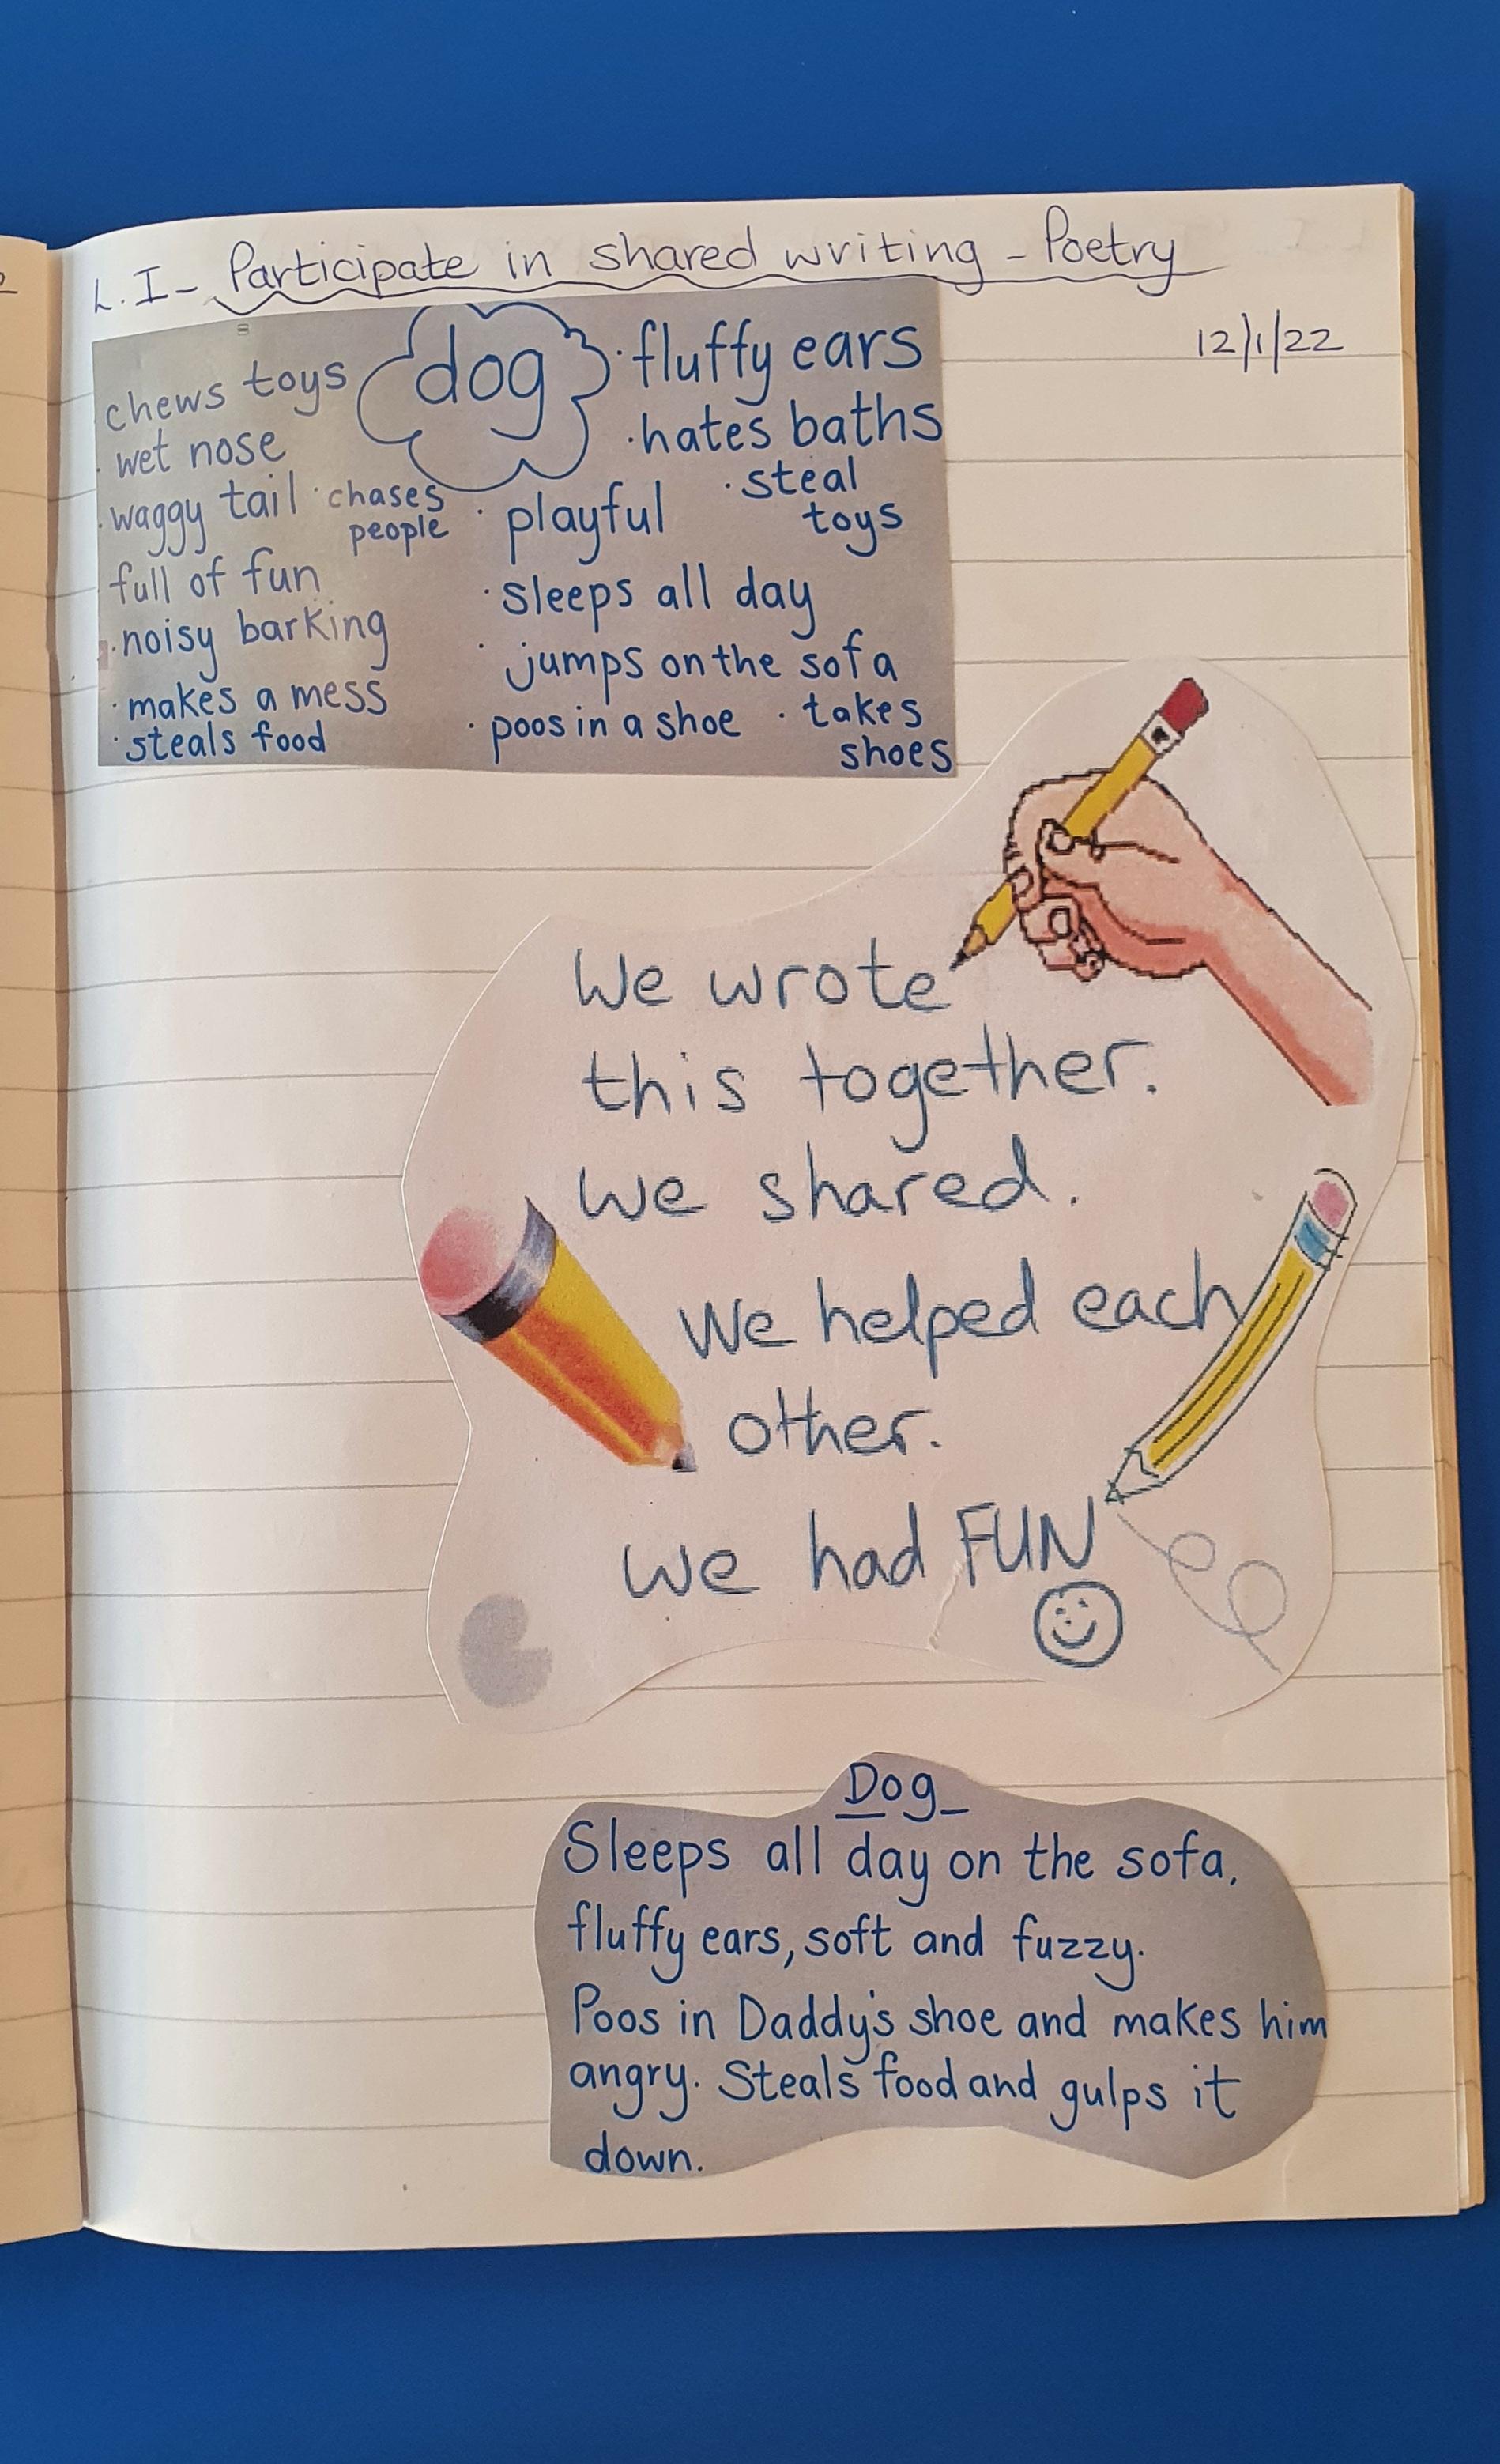 L.I - Participate in shared writing - Poetry
12/1/22
dog
chews toys
· wet nose
· waggy tail
· chases
people
full of fun
· noisy barking
· makes a mess
· steals food
· fluffy ears
· hates baths
· steal
toys
· playful
· sleeps all day
· jumps on the sofa
· poos in a shoe
· takes
shoes
We wrote
this together.
We shared.
We helped each
other.
We had FUN
Dog
Sleeps all day on the sofa,
fluffy ears, soft and fuzzy.
Poos in Daddy's shoe and makes him
angry. Steals food and gulps it
down.